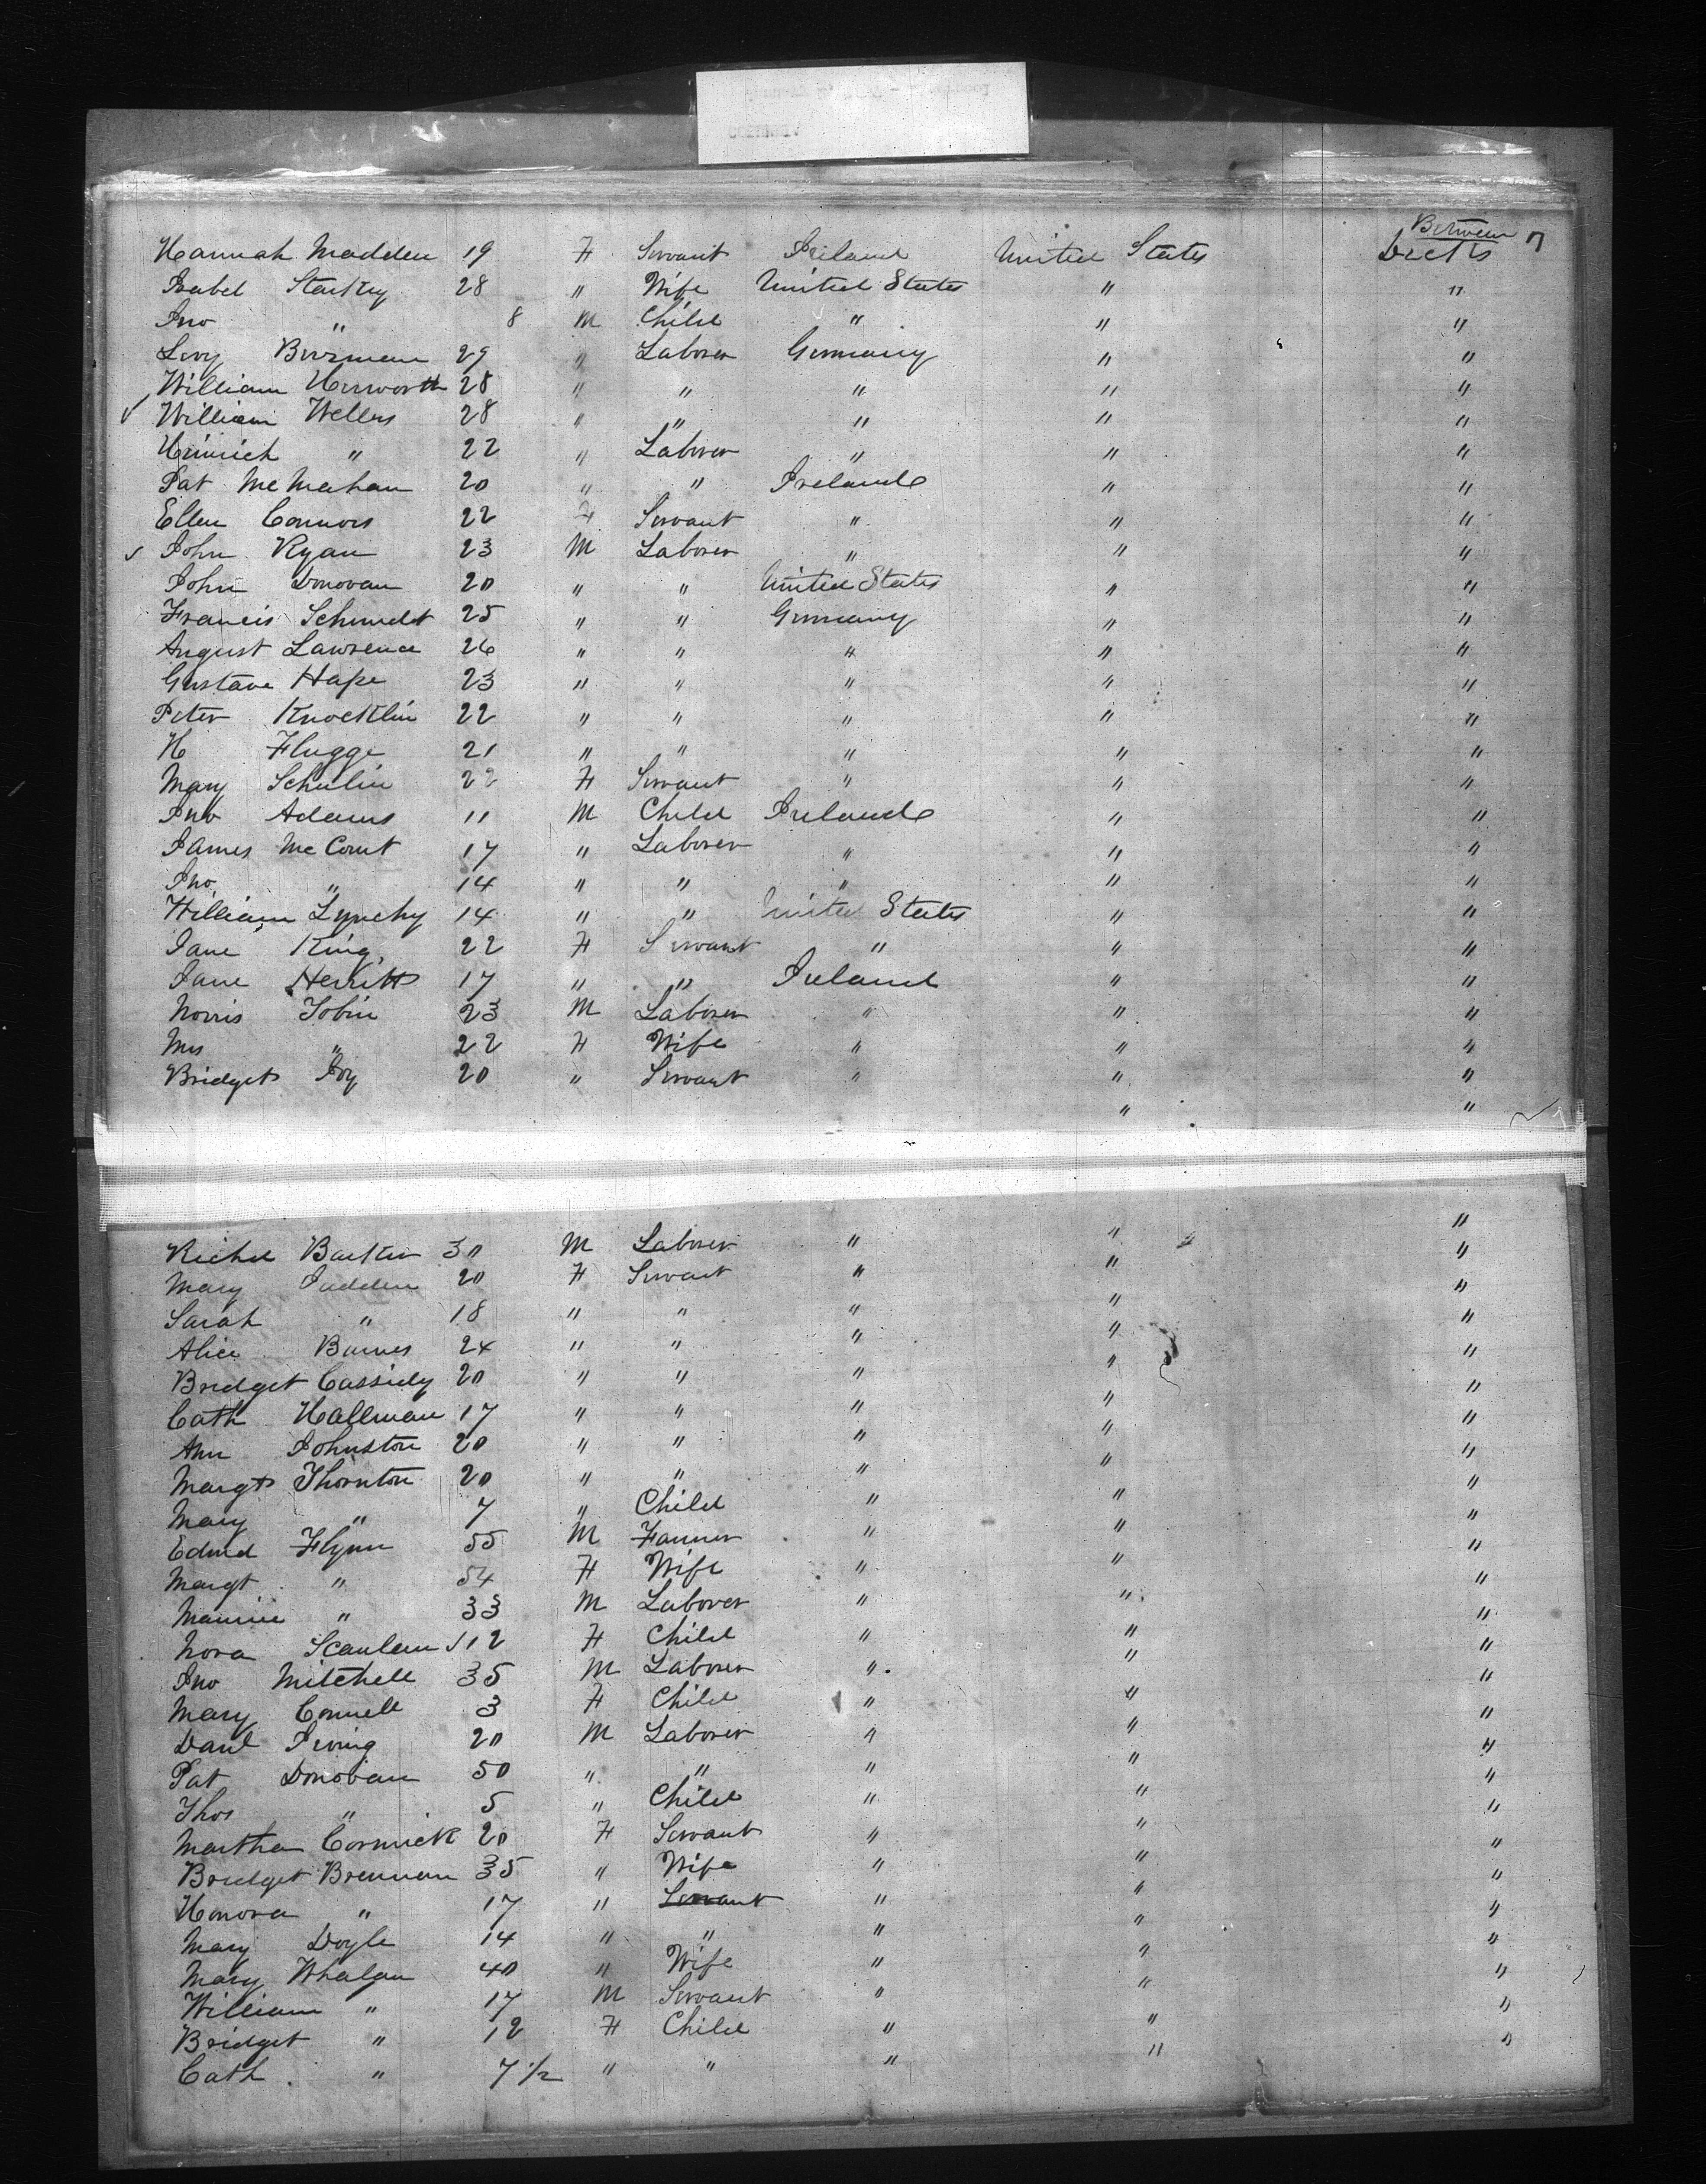 Between 7
Hannah Madden 19 F Servant Ireland United States Decks
Isabel Starkey 28 " Wife United States " "
Jno " 8 M Child " " "
Levy Bierman 29 " Laborer Germany " "
William Herworth 28 " " " " "
William Wellers 28 " " " " "
Heinrich " 22 " Laborer " " "
Pat McMahan 20 " " Ireland " "
Ellen Connors 22 F Servant " " "
John Ryan 23 M Laborer " " "
John Donovan 20 " " United States " "
Francis Schmidt 25 " " Germany " "
August Lawrence 26 " " " " "
Gustave Hape 23 " " " " "
Peter Knocklin 22 " " " " "
H Flugge 21 " " " " "
Mary Schulin 22 F Servant " " "
Jno Adams 11 M Child Ireland " "
James McCourt 17 " Laborer " " "
Jno " 14 " " " " "
William Lynchy 14 " " United States " "
Jane King 22 F Servant " " "
Jane Herritt 17 " " Ireland " "
Norris Tobin 23 M Laborer " " "
Mrs " 22 F Wife " " "
Bridget Joy 20 " Servant " " "
" "
Richd Barker 30 M Laborer " " "
Mary Judden 20 F Servant " " "
Sarah " 18 " " " " "
Alice Barnes 24 " " " " "
Bridget Cassidy 20 " " " " "
Cath Hallman 17 " " " " "
Ann Johnston 20 " " " " "
Margt Thornton 20 " " " " "
Mary " 7 " Child " " "
Edmd Flynn 55 M Farmer " " "
Margt " 54 F Wife " " "
Maurice " 33 M Laborer " " "
Nora Scanlan 12 F Child " " "
Jno Mitchell 35 M Laborer " " "
Mary Connell 3 F Child " " "
Danl Irving 20 M Laborer " " "
Pat Donovan 50 " " " " "
Thos " 5 " Child " " "
Martha Cormick 20 F Servant " " "
Bridget Brennan 35 " Wife " " "
Honora " 17 " Servant " " "
Mary Doyle 14 " " " " "
Mary Whalan 40 " Wife " " "
William " 17 M Servant " " "
Bridget " 12 F Child " " "
Cath " 7 1/2 " " " " "